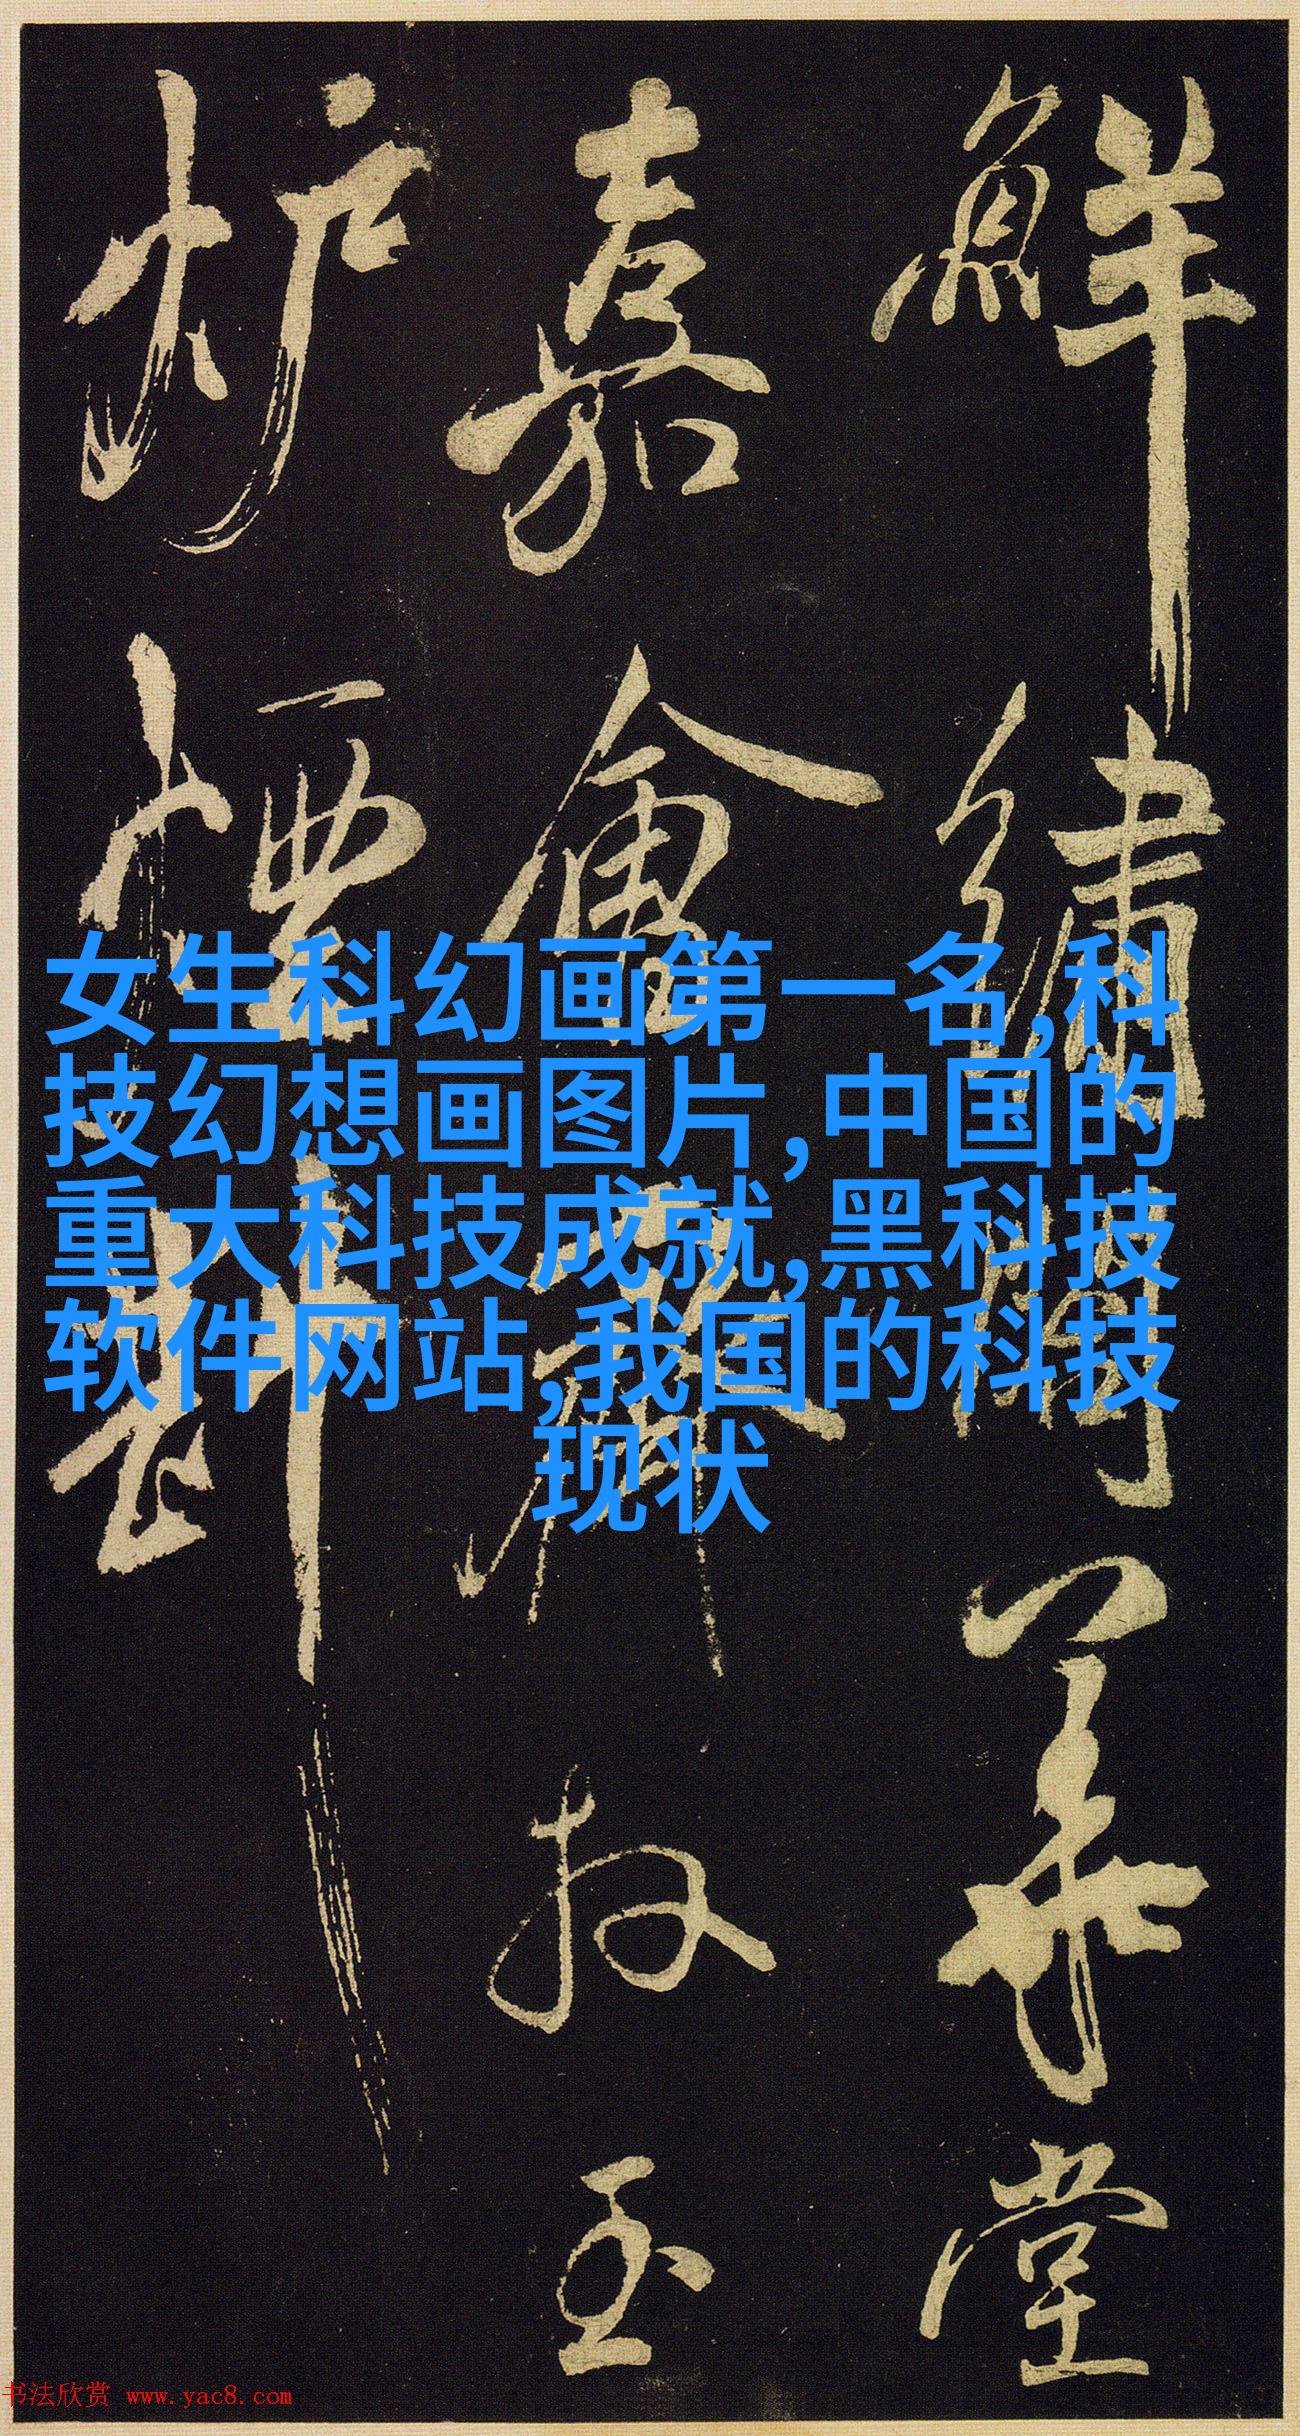 鮮繡綺筝堂
嘉會廊放玉
炉煙斟
女生科幻画第一名,科
技幻想画图片,中国的
重大科技成就,黑科技
软件网站,我国的科技
现状
书法欣赏 www.yac8.com